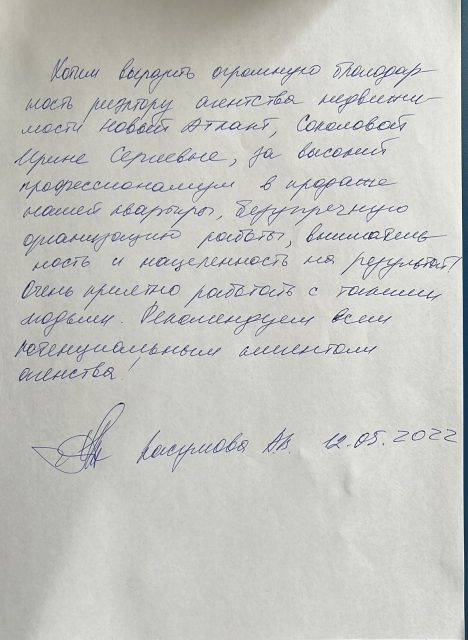 Хотим выразить огромную благодар-
ность риэлтору агентства недвижи-
мости Новый Атлант, Соколовой
Ирине Сергеевне, за высокий
профессионализм в продаже
нашей квартиры, безупречную
организацию работы, вниматель
ность и нацеленность на результат!
Очень приятно работать с такими
людьми. Рекомендуем всем
потенциальным клиентам
агенства!
А.В. 12.05.2022